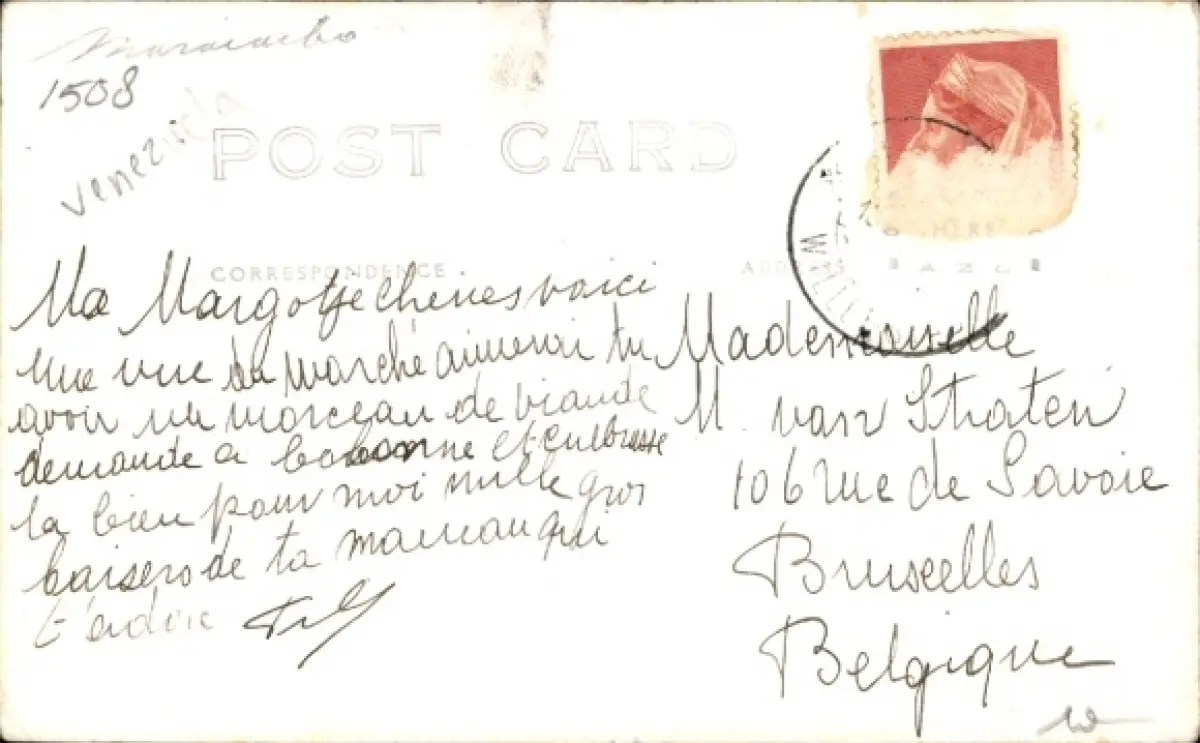 Maracaibo
1508
Venezuela
POST CARD
CORRESPONDENCE
ADDRESS
HERE
Ma Margotje chérie voici
une vue du marché aimerai tu
avoir un morceau de viande
demande a bobonne et embrasse
la bien pour moi mille gros
baisers de ta maman qui
t'adore
Mademoiselle
M. van Straten
106 rue de Savoie
Bruxelles
Belgique